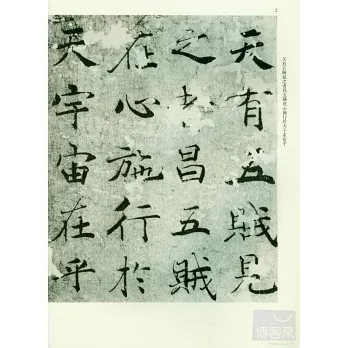 2
天有五賊見之者昌五賊在心施行於天宇宙在乎
天有五賊見
之者昌五賊
在心施行於
天宇宙在乎
博客來